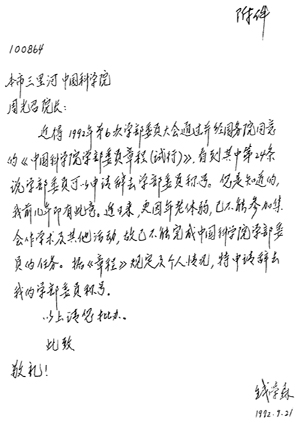 附件
100864
本市三里河中国科学院
周光召院长：
近得1992年第6次学部委员大会通过并经国务院同意
的《中国科学院学部委员章程(试行)》，看到其中第24条
说学部委员可以申请辞去学部委员称号。您是知道的，
我前几年即有此意。近日来，更因年老体弱，已不能参加集
会作学术及其他活动，故已不能完成中国科学院学部委
员的任务。据《章程》规定及个人情况，特申请辞去
我的学部委员称号。
以上请您批办。
此致
敬礼！
钱学森
1992.9.21